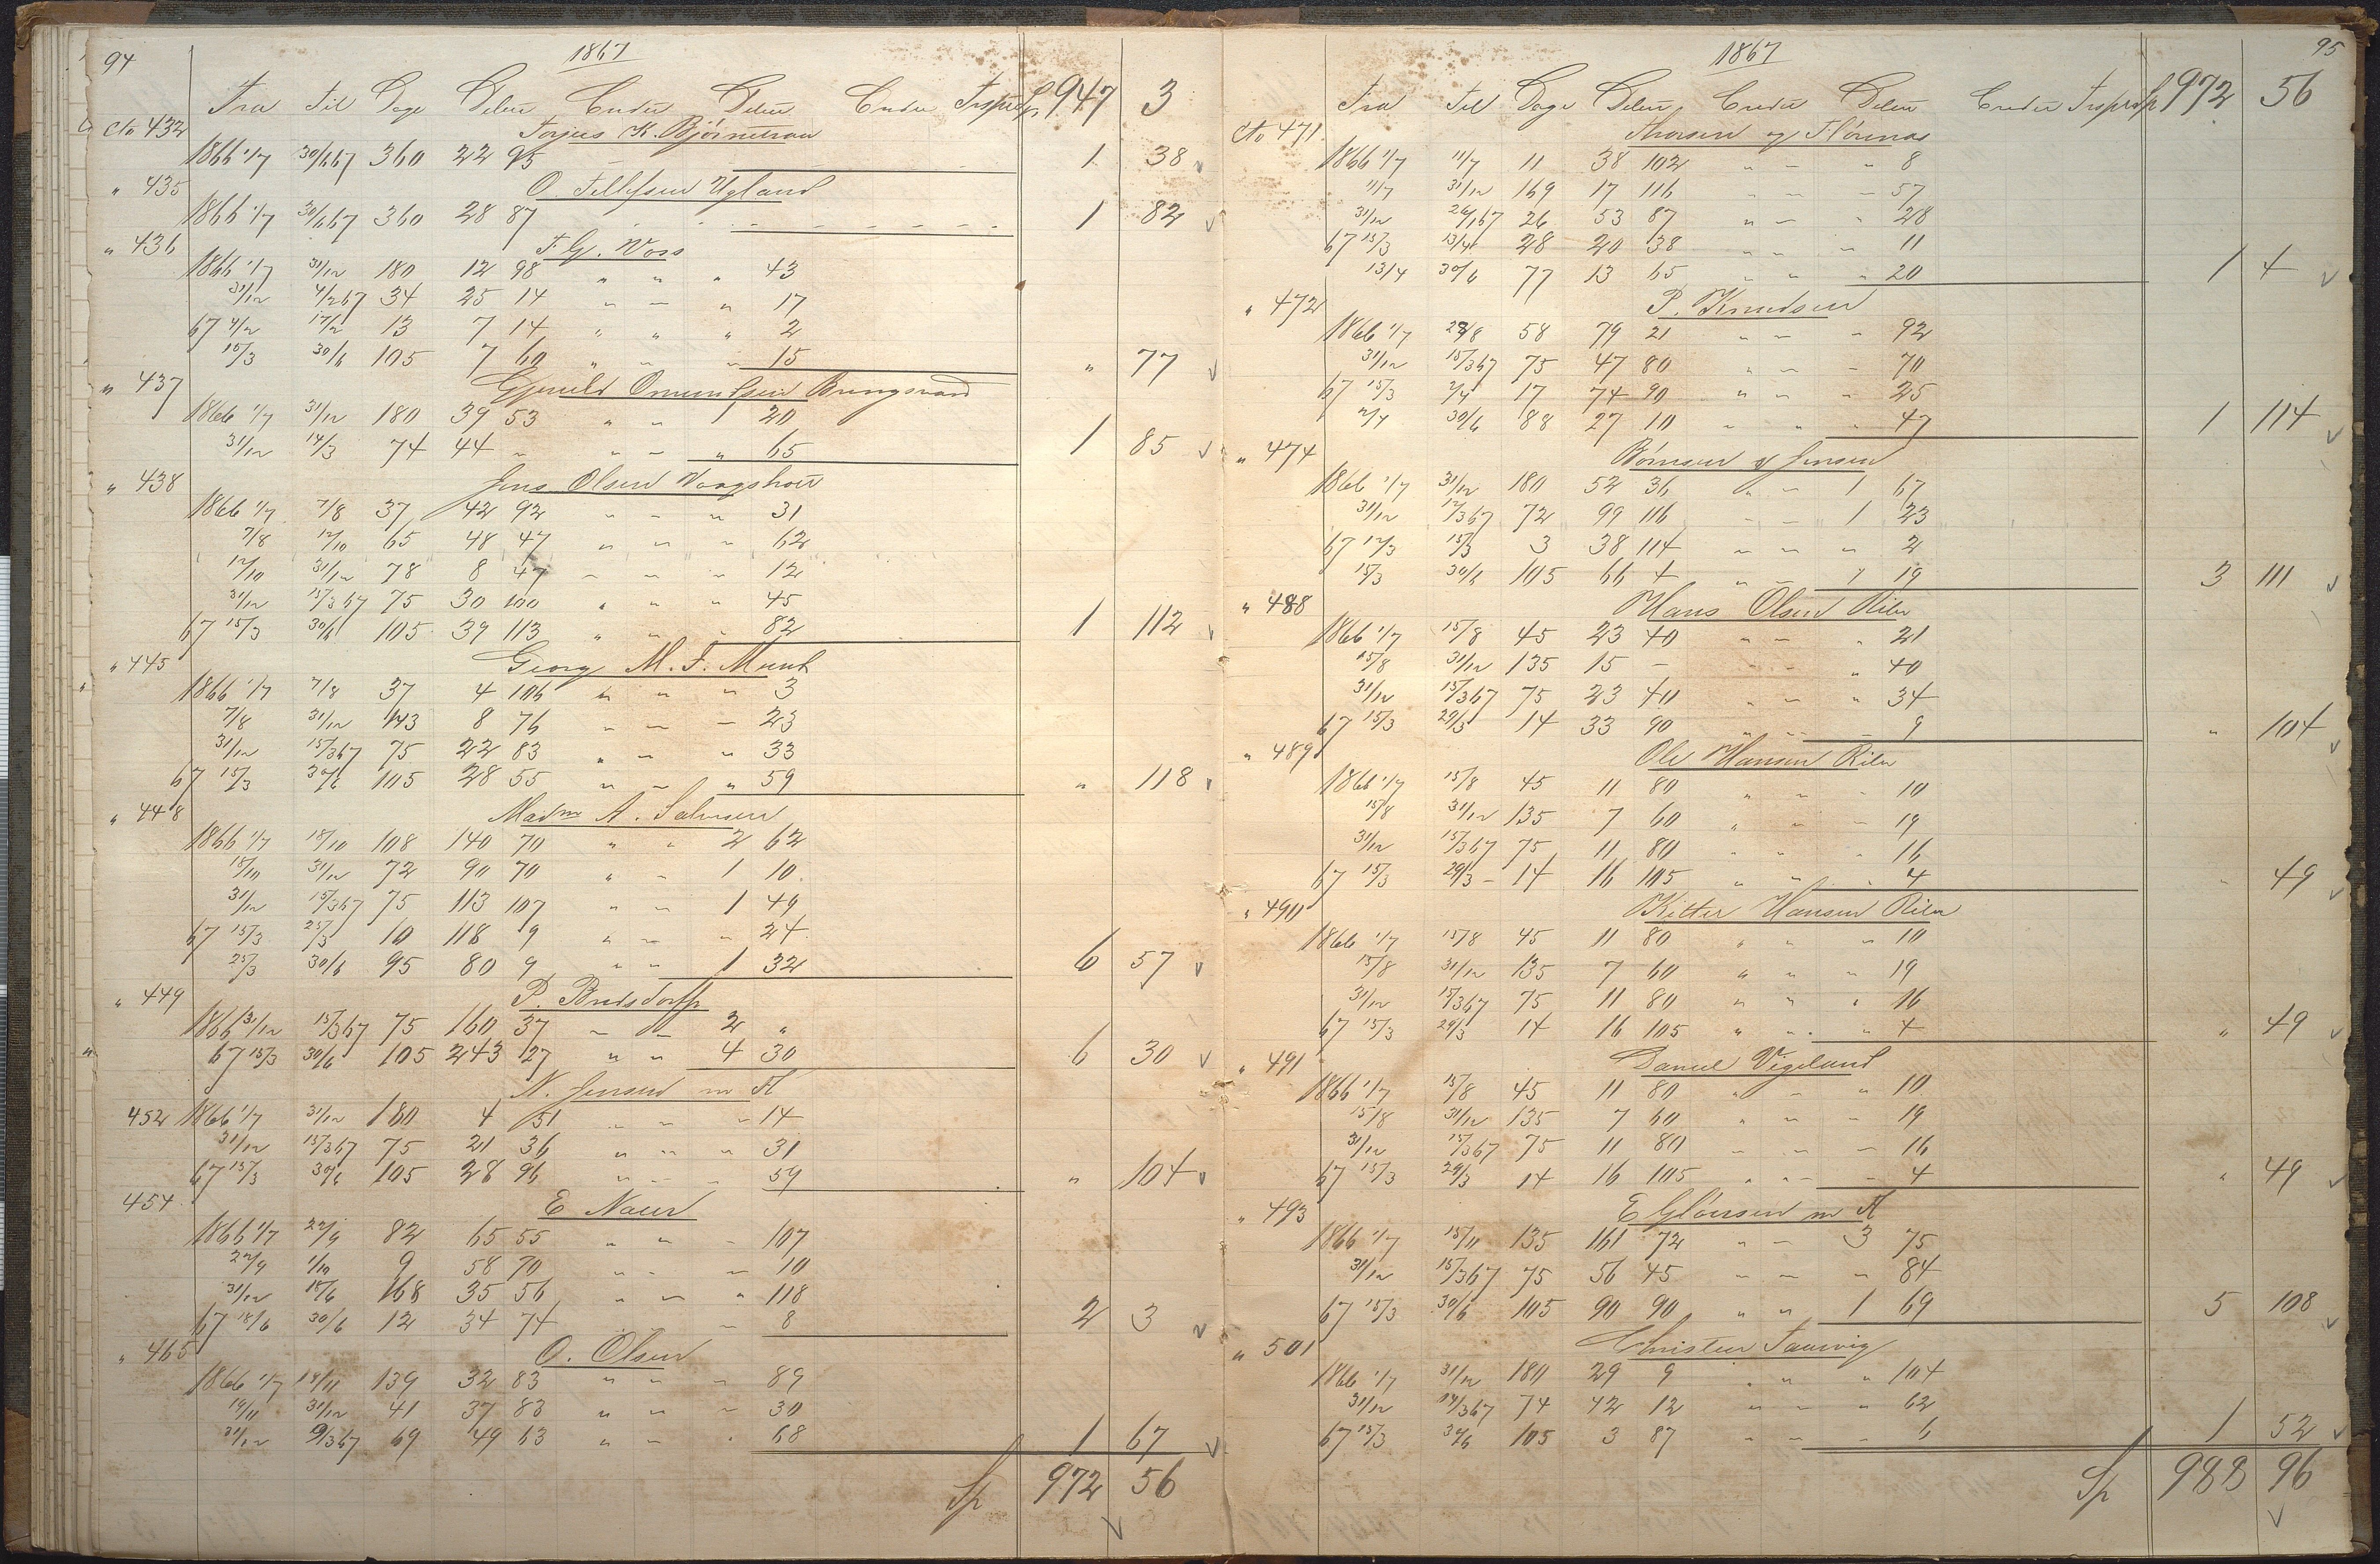 94
1867
Fra Til Dage Debet Credit Debet Credit Transport Sp 947 3
Cto 432 Torjus K. Bjørnetraa
1866 1/7 30/6 67 360 22 95 1 38
" 435 O. Tellefsen Ugland
1866 1/7 30/6 67 360 28 87 1 82
" 436 F. G. Voss
1866 1/7 31/12 180 12 98 " " " 43
31/12 4/2 67 34 25 14 " " " 17
67 4/2 17/2 13 7 14 " " " 2
15/3 30/6 105 7 60 " " " 15 " 77
" 437 Gjeruld Omundsen Bringsvard
1866 1/7 31/12 180 39 53 " " 1 20
31/12 14/3 74 44 " " " " 65 1 85
" 438 Jens Olsen Vaagsholt
1866 1/7 7/8 37 42 92 " " " 31
7/8 12/10 65 48 47 " " " 62
12/10 31/12 78 8 47 " " " 12
31/12 15/3 67 75 30 100 " " " 45
67 15/3 30/6 105 39 113 " " " 82 1 112
" 445 Georg M. F. Munk
1866 1/7 7/8 37 4 106 " " " 3
7/8 31/12 143 8 76 " " " 23
31/12 15/3 67 75 22 83 " " " 33
67 15/3 30/6 105 28 55 " " " 59 " 118
" 448 Madm A. Salvesen
1866 1/7 18/10 108 140 70 " " 2 62
18/10 31/12 72 90 70 " " 1 10
31/12 15/3 67 75 113 107 " " 1 49
67 15/3 25/3 10 118 9 " " " 24
25/3 30/6 95 80 9 " " 1 32 6 57
" 449 P. Bredsdorff
1866 31/12 15/3 67 75 160 37 " " 2 "
67 15/3 30/6 105 243 27 " " 4 30 6 30
N. Jensen m A
452 1866 1/7 31/12 180 4 51 " " " 14
31/12 15/3 67 75 21 36 " " " 31
67 15/3 30/6 105 28 96 " " " 59 " 104
454 E Naur
1866 1/7 22/9 82 65 55 " " " 107
22/9 1/10 9 58 70 " " " 10
31/12 18/6 168 35 56 " " " 118
67 18/6 30/6 12 34 74 " 8 2 3
" 465 O. Olsen
1866 1/7 19/11 139 32 83 " " " 89
19/11 31/12 41 37 83 " " " 30
31/12 9/3 67 69 49 63 " " " 68 1 67
Sp 972 56
95
1867
Fra Til Dage Debet Credit Debet Credit Transport Sp 972 56
Cto 471 Thorsen og Flørenæs
1866 1/7 11/7 11 38 102 " " " 8
11/7 31/12 169 17 116 " " " 57
31/12 26/1 67 26 53 87 " " " 28
67 15/3 13/4 28 20 38 " " " 11
13/4 30/6 77 13 65 " " " 20 1 4
" 472 P. Knudsen
1866 1/7 28/8 58 79 21 " " " 92
31/12 15/3 67 75 47 80 " " " 70
67 15/3 2/4 17 74 90 " " " 25
2/4 30/6 88 27 10 " " " 47 1 114
" 474 Børresen & Jensen
1866 1/7 31/12 180 52 36 " " 1 67
31/12 12/3 67 72 99 116 " " 1 23
67 12/3 15/3 3 38 114 " " " 2
15/3 30/6 105 66 4 " " 1 19 3 111
" 488 Hans Olsen Riler
1866 1/7 15/8 45 23 40 " " " 21
15/8 31/12 135 15 " " " " 40
31/12 15/3 67 75 23 40 " " " 34
67 15/3 29/3 14 33 90 " " " 9 " 104
" 489 Ole Hansen Riler
1866 1/7 15/8 45 11 80 " " " 10
15/8 31/12 135 7 60 " " " 19
31/12 15/3 67 75 11 80 " " " 16
67 15/3 29/3 14 16 105 " " " 4 " 49
" 490 Ketter Hansen Riler
1866 1/7 15/8 45 11 80 " " " 10
15/8 31/12 135 7 60 " " " 19
31/12 15/3 67 75 11 80 " " " 16
67 15/3 29/3 14 16 105 " " " 4 " 49
" 491 Daniel Vigeland
1866 1/7 15/8 45 11 80 " " " 10
15/8 31/12 135 7 60 " " " 19
31/12 15/3 67 75 11 80 " " " 16
67 15/3 29/3 14 16 105 " " " 4 " 49
" 493 E Gløersen m A
1866 1/7 15/11 135 161 72 " " 3 75
31/12 15/3 67 75 56 45 " " " 84
67 15/3 30/6 105 90 90 " " 1 69 5 108
" 501 Christen Tanvig
1866 1/7 31/12 180 29 9 " " " 104
31/12 14/3 67 74 42 12 " " " 62
67 15/3 30/6 105 3 87 " " " 6 1 52
Sp 988 96